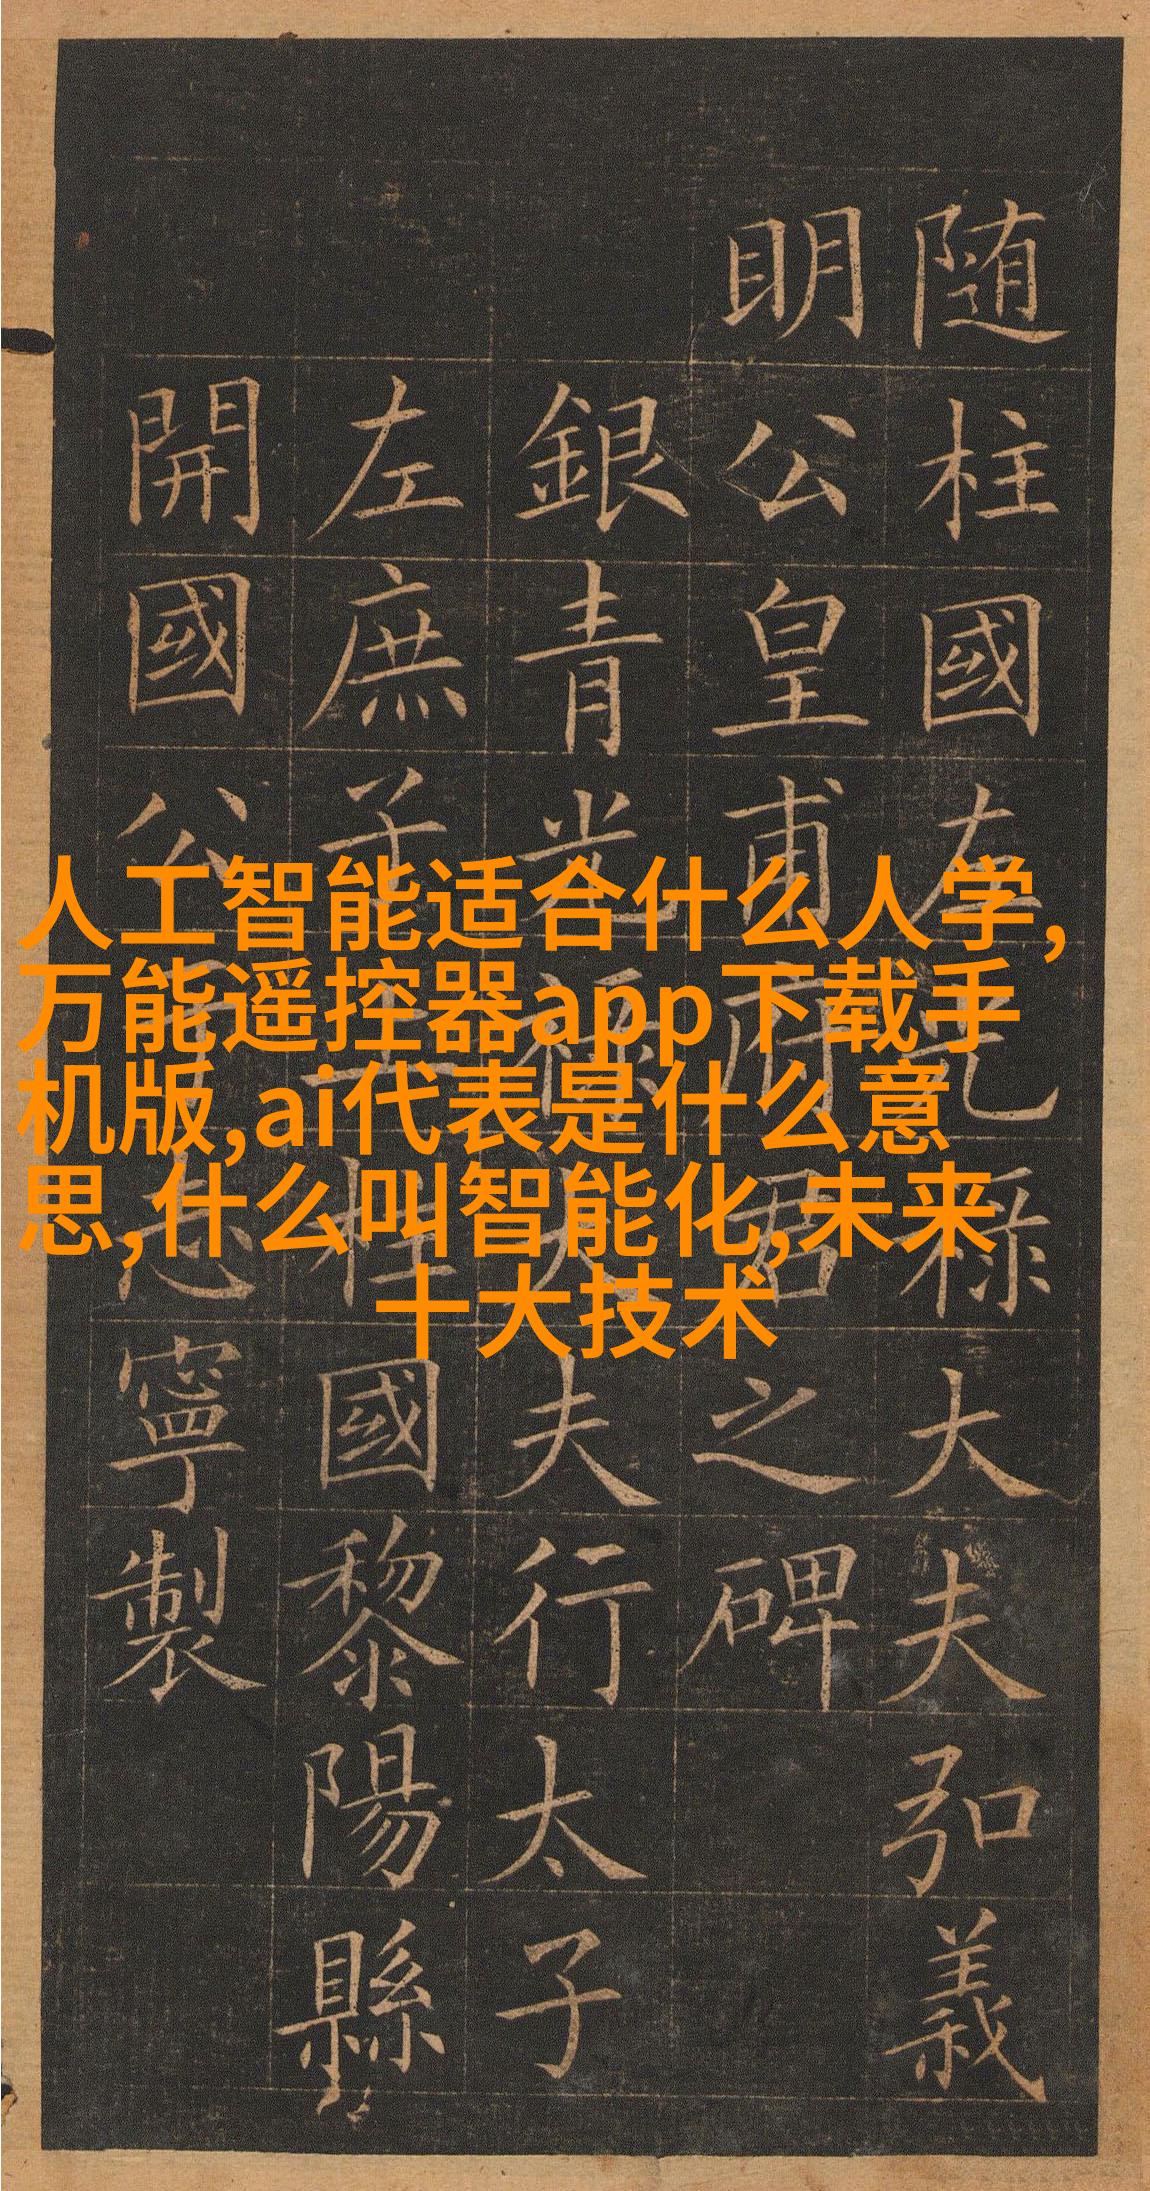 随柱國左光禄大夫弘義
明公皇甫府君之碑
銀青光禄大夫行太子
左庶子上柱國黎陽縣
開國公于志寧製
人工智能适合什么人学,
万能遥控器app下载手
机版,ai代表是什么意
思,什么叫智能化,未来
十大技术